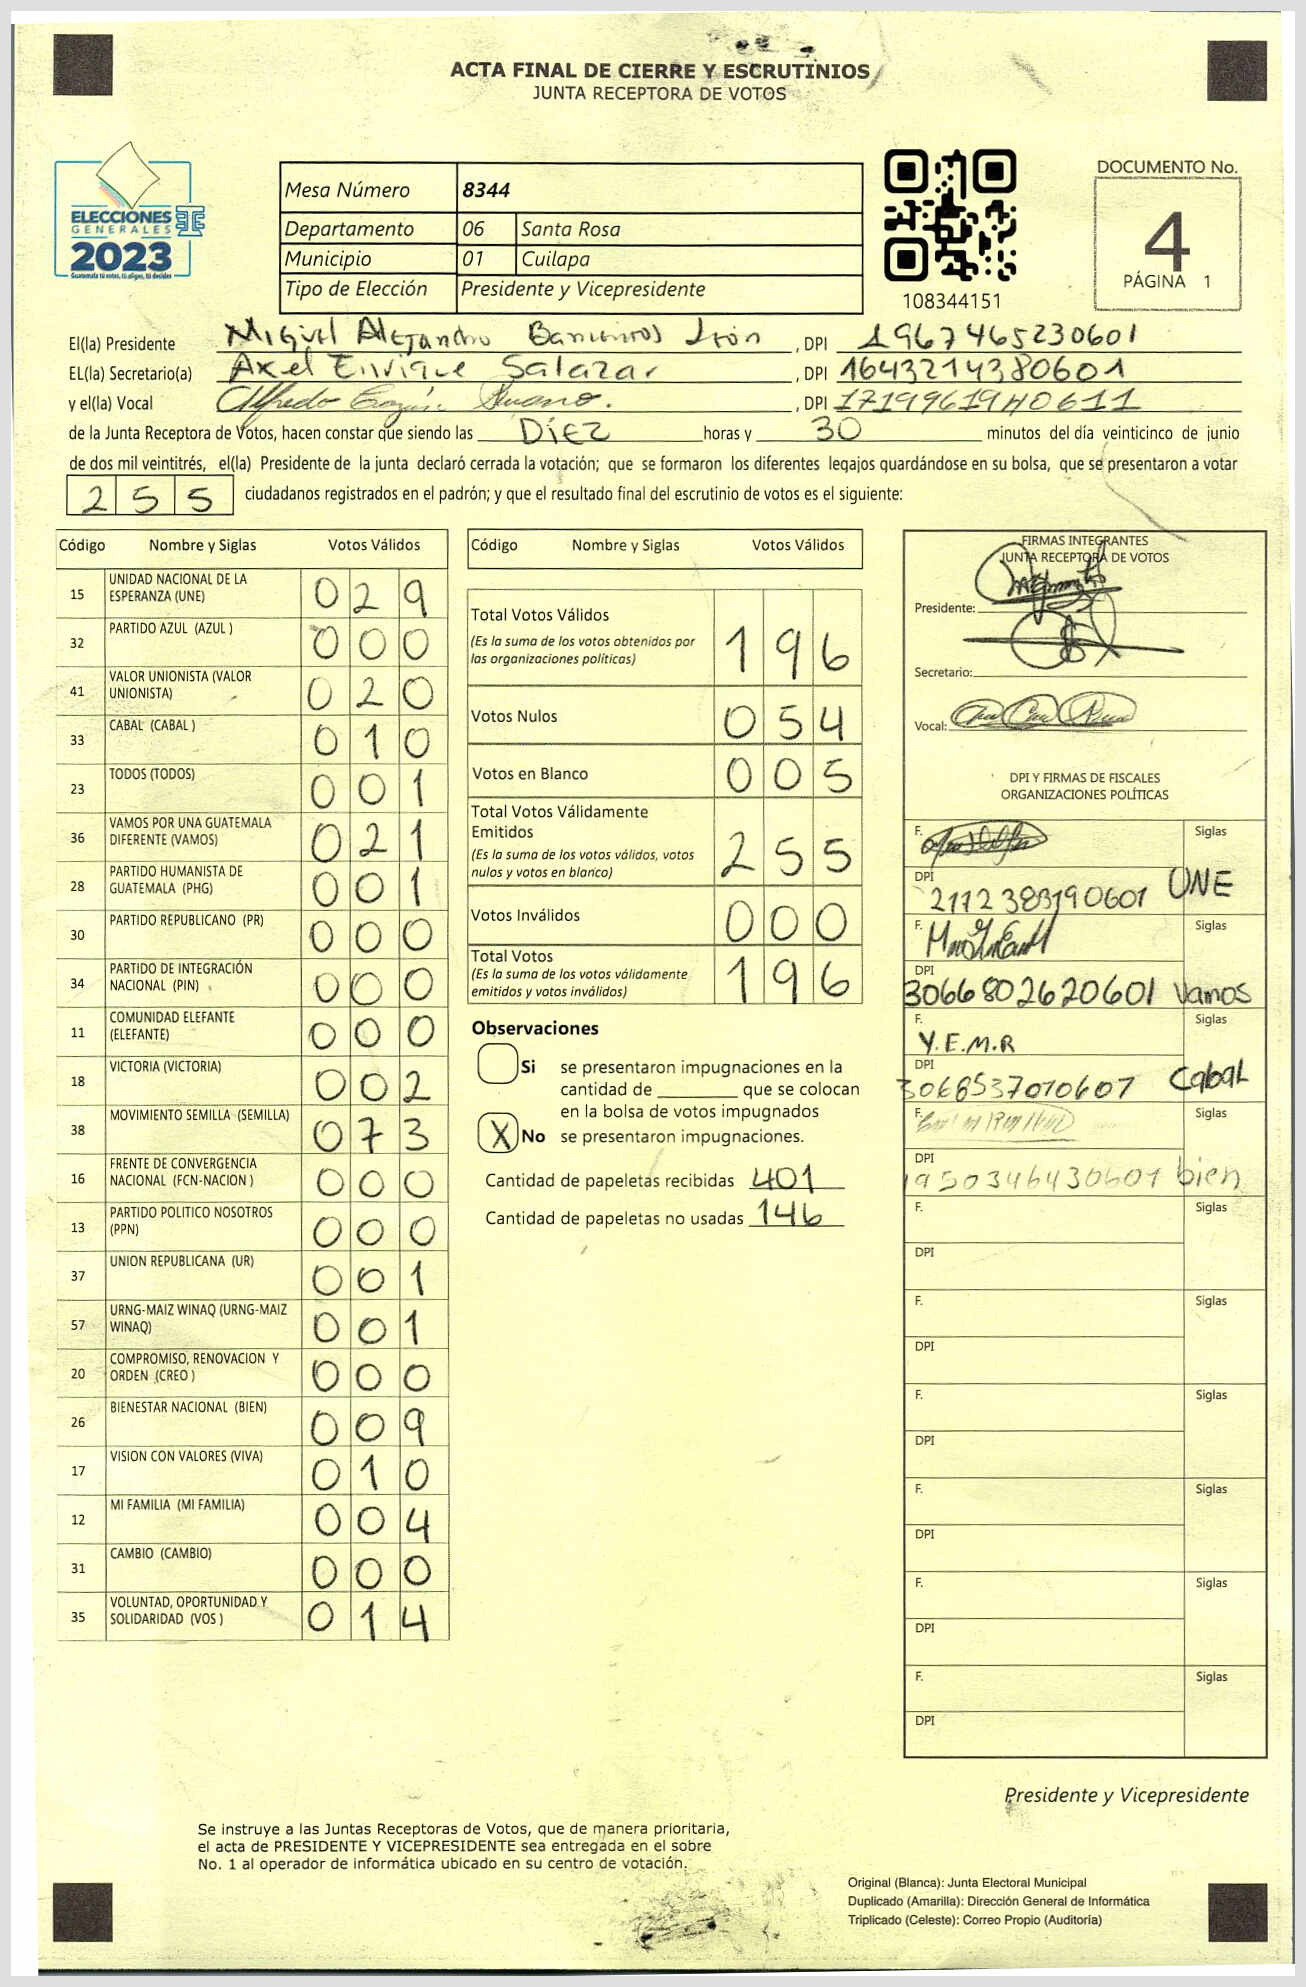 ACTA FINAL DE CIERRE Y ESCRUTINIOS
JUNTA RECEPTORA DE VOTOS
ELECCIONES
GENERALES
2023
Guatemala tú votas, tú eliges, tú decides
Mesa Número 8344
Departamento 06 Santa Rosa
Municipio 01 Cuilapa
Tipo de Elección Presidente y Vicepresidente
108344151
DOCUMENTO No.
4
PÁGINA 1
El(la) Presidente Miguel Alejandro Barrientos León, DPI 1967465230601
EL(la) Secretario(a) Axel Enrique Salazar, DPI 1643214380601
y el(la) Vocal Alfredo, DPI
de la Junta Receptora de Votos, hacen constar que siendo las Diez horas y 30 minutos del día veinticinco de junio
de dos mil veintitrés, el(la) Presidente de la junta declaró cerrada la votación; que se formaron los diferentes legajos guardándose en su bolsa, que se presentaron a votar
255 ciudadanos registrados en el padrón; y que el resultado final del escrutinio de votos es el siguiente:
Código Nombre y Siglas Votos Válidos
15 UNIDAD NACIONAL DE LA ESPERANZA (UNE) 029
32 PARTIDO AZUL (AZUL ) 000
41 VALOR UNIONISTA (VALOR UNIONISTA) 020
33 CABAL (CABAL ) 010
23 TODOS (TODOS) 001
36 VAMOS POR UNA GUATEMALA DIFERENTE (VAMOS) 021
28 PARTIDO HUMANISTA DE GUATEMALA (PHG) 001
30 PARTIDO REPUBLICANO (PR) 000
34 PARTIDO DE INTEGRACIÓN NACIONAL (PIN) 000
11 COMUNIDAD ELEFANTE (ELEFANTE) 000
18 VICTORIA (VICTORIA) 002
38 MOVIMIENTO SEMILLA (SEMILLA) 073
16 FRENTE DE CONVERGENCIA NACIONAL (FCN-NACION ) 000
13 PARTIDO POLITICO NOSOTROS (PPN) 000
37 UNION REPUBLICANA (UR) 001
57 URNG-MAIZ WINAQ (URNG-MAIZ WINAQ) 001
20 COMPROMISO, RENOVACION Y ORDEN (CREO ) 000
26 BIENESTAR NACIONAL (BIEN) 009
17 VISION CON VALORES (VIVA) 010
12 MI FAMILIA (MI FAMILIA) 004
31 CAMBIO (CAMBIO) 000
35 VOLUNTAD, OPORTUNIDAD Y SOLIDARIDAD (VOS ) 014
Código Nombre y Siglas Votos Válidos
Total Votos Válidos
(Es la suma de los votos obtenidos por
las organizaciones políticas) 196
Votos Nulos 054
Votos en Blanco 005
Total Votos Válidamente
Emitidos
(Es la suma de los votos válidos, votos
nulos y votos en blanco) 255
Votos Inválidos 000
Total Votos
(Es la suma de los votos válidamente
emitidos y votos inválidos) 196
Observaciones
Si se presentaron impugnaciones en la
cantidad de ________ que se colocan
en la bolsa de votos impugnados
X No se presentaron impugnaciones.
Cantidad de papeletas recibidas 401
Cantidad de papeletas no usadas 146
FIRMAS INTEGRANTES
JUNTA RECEPTORA DE VOTOS
Presidente:
Secretario:
Vocal:
DPI Y FIRMAS DE FISCALES
ORGANIZACIONES POLÍTICAS
F. Siglas
DPI 2112383190601 UNE
F. Siglas
DPI 3066802620601 Vamos
F. Y.E.M.R Siglas
DPI 3068537010607 Cabal
F. Siglas
DPI 1950346430601 bien
F. Siglas
DPI
F. Siglas
DPI
F. Siglas
DPI
F. Siglas
DPI
F. Siglas
DPI
F. Siglas
DPI
Presidente y Vicepresidente
Se instruye a las Juntas Receptoras de Votos, que de manera prioritaria,
el acta de PRESIDENTE Y VICEPRESIDENTE sea entregada en el sobre
No. 1 al operador de informática ubicado en su centro de votación.
Original (Blanca): Junta Electoral Municipal
Duplicado (Amarilla): Dirección General de Informática
Triplicado (Celeste): Correo Propio (Auditoría)